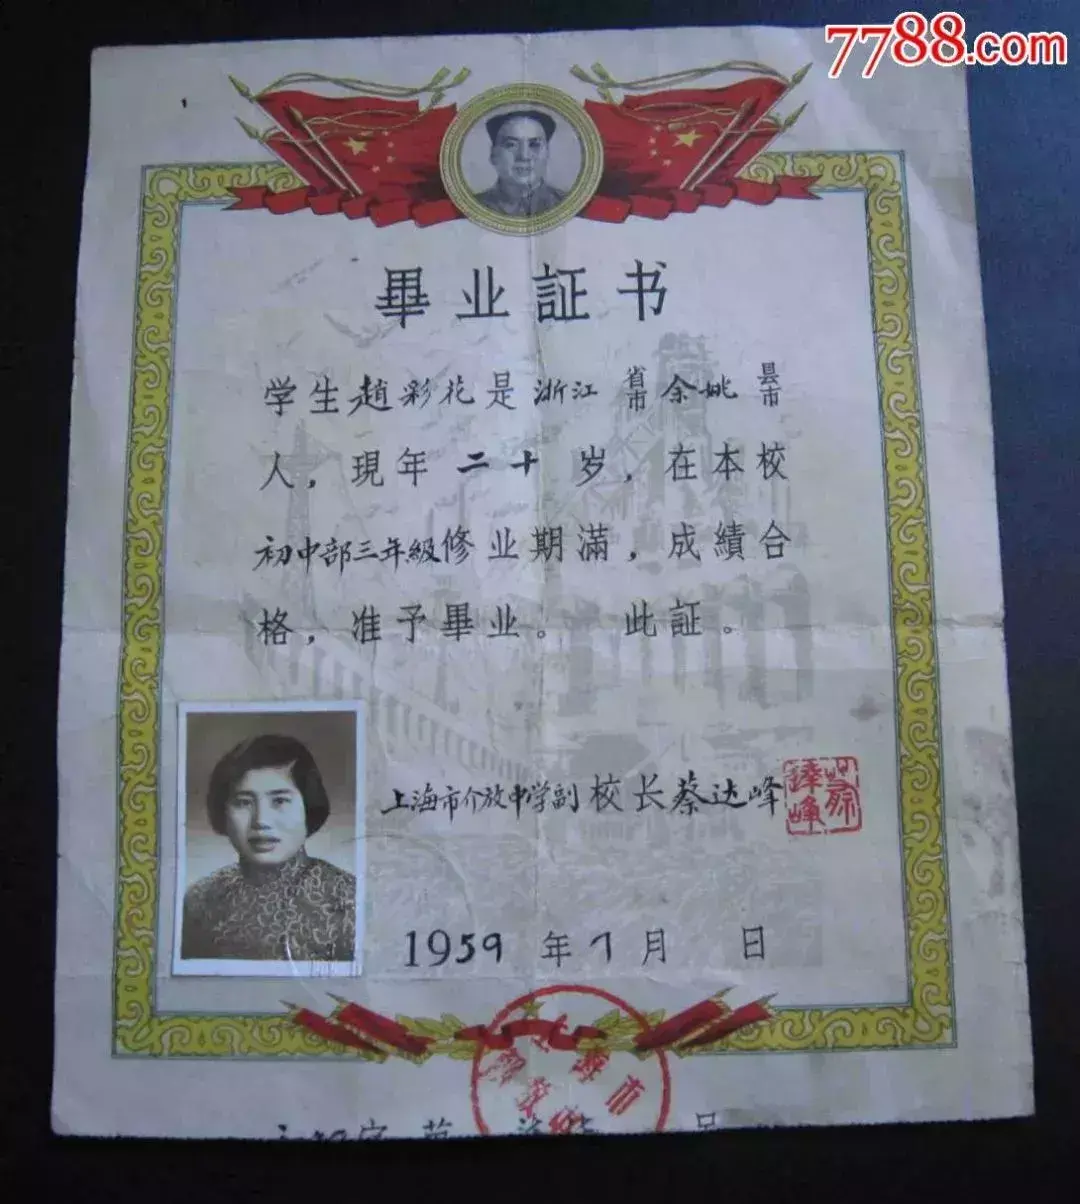 7788.com
畢业証书
学生趙彩花是浙江省市余姚县市
人，現年二十岁，在本校
初中部三年級修业期滿，成績合
格，准予畢业。此証。
上海市介放中学副校长蔡达峰
1959年7月 日
上海市